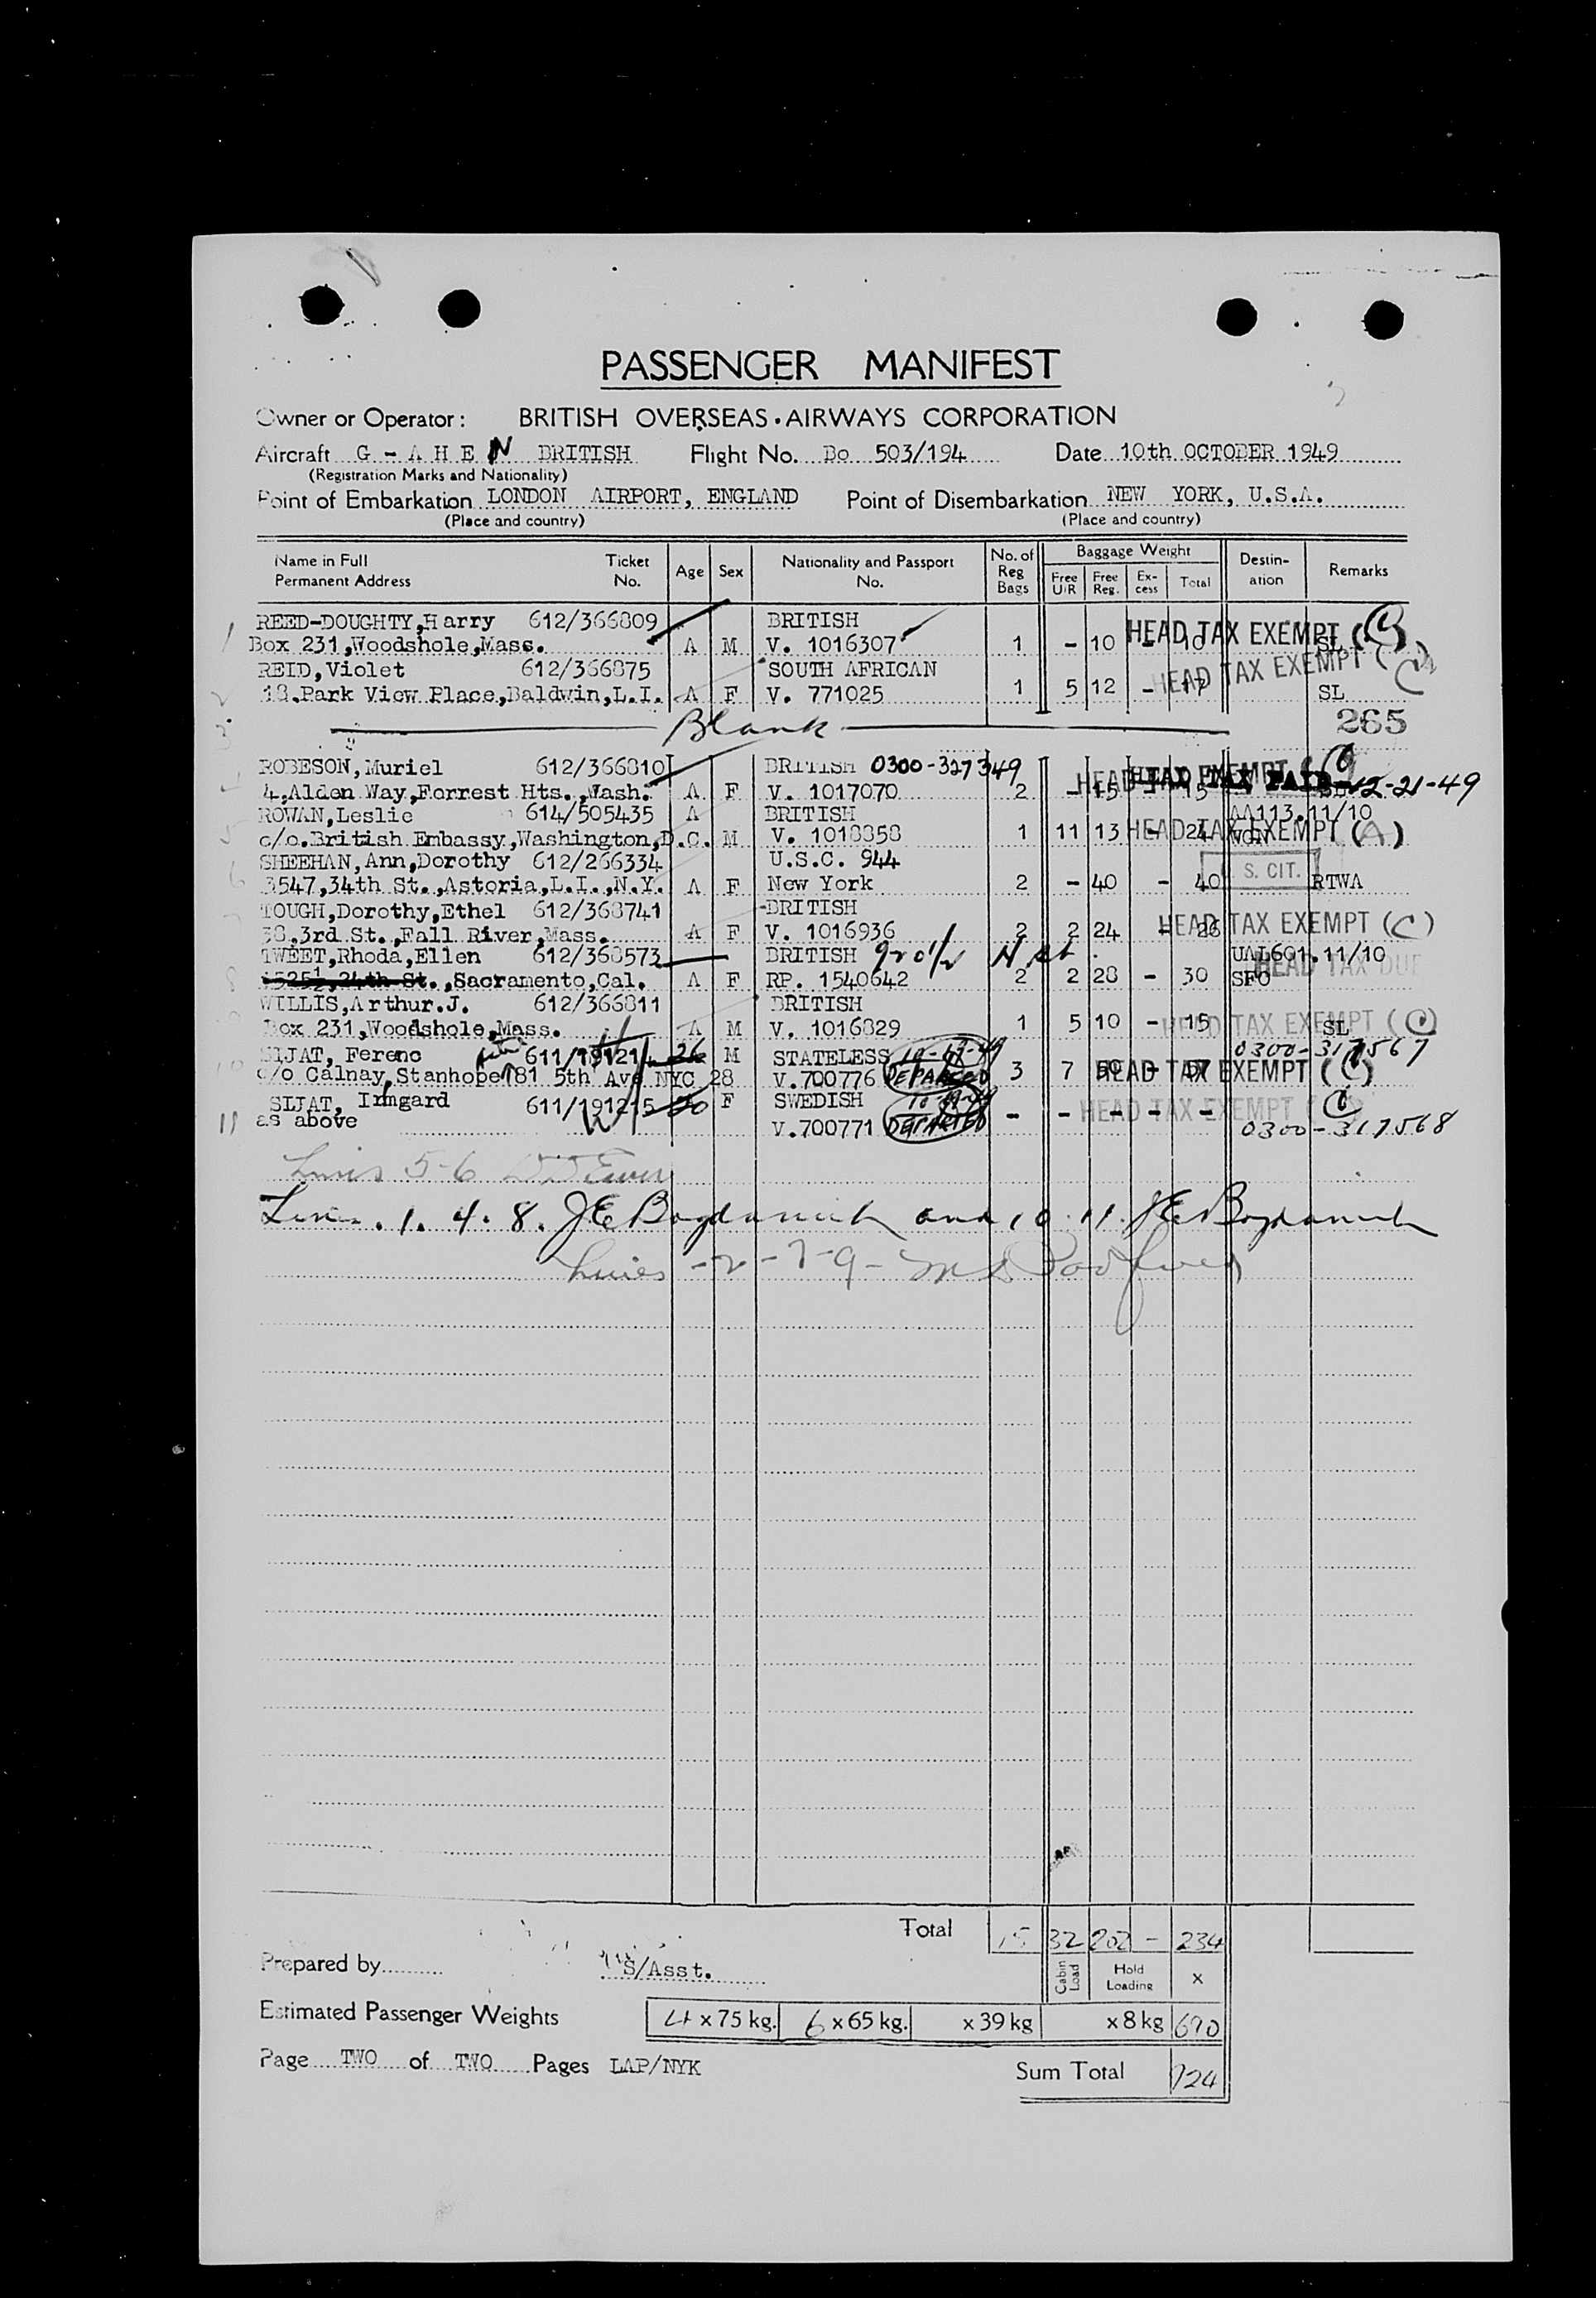 PASSENGER MANIFEST
Owner or Operator: BRITISH OVERSEAS AIRWAYS CORPORATION
Aircraft G - A H E N BRITISH Flight No. Bo 503/194 Date 10th OCTOBER 1949
(Registration Marks and Nationality)
Point of Embarkation LONDON AIRPORT, ENGLAND Point of Disembarkation NEW YORK, U.S.A.
(Place and country) (Place and country)
Name in Full Permanent Address Ticket No. Age Sex Nationality and Passport No. No. of Reg Bags Baggage Weight Free U/R Free Reg. Ex-cess Total Destin-ation Remarks
REED-DOUGHTY,Harry 612/366809 BRITISH
Box 231,Woodshole,Mass. A M V. 1016307 1 - 10 - 10 HEAD TAX EXEMPT (C) SL
REID,Violet 612/366875 SOUTH AFRICAN HEAD TAX EXEMPT (C)
18.Park View Place,Baldwin,L.I. A F V. 771025 1 5 12 - 17 SL
Blank 265
ROBESON,Muriel 612/366810 BRITISH 0300-327349
4,Alden Way,Forrest Hts.,Wash. A F V. 1017070 2 - 15 - 15 HEAD TAX PAID 12-21-49
ROWAN,Leslie 614/505435 A BRITISH AA113.11/10
c/o.British Embassy,Washington,D.C. M V. 1018858 1 11 13 - 24 HEAD TAX EXEMPT (A)
SHEEHAN,Ann,Dorothy 612/266334 U.S.C. 944 S. CIT.
3547,34th St.,Astoria,L.I.,N.Y. A F New York 2 - 40 - 40 RTWA
TOUGH,Dorothy,Ethel 612/368741 BRITISH
38,3rd St.,Fall River,Mass. A F V. 1016936 2 2 24 - 26 HEAD TAX EXEMPT (C)
TWEET,Rhoda,Ellen 612/368573 BRITISH UAL601.11/10
24th St.,Sacramento,Cal. A F RP. 1540642 2 2 28 - 30 SFO HEAD TAX DUE
WILLIS,Arthur.J. 612/366811 BRITISH
Box 231,Woodshole,Mass. A M V. 1016829 1 5 10 - 15 HEAD TAX EXEMPT (C) SL
SIJAT, Ferenc 611/191214 26 M STATELESS 0300-317567
c/o Calnay,Stanhope 81 5th Ave NYC 28 V.700776 DEPARTED 3 7 50 - 57 HEAD TAX EXEMPT (C)
SIJAT, Irmgard 611/191215 F SWEDISH - - - - - HEAD TAX EXEMPT (C)
11 as above V.700771 DEPARTED 0300-317568
Lines 5-6
Lines. 1. 4. 8. and 10. 11.
Lines -2-7-9-
Total 15 32 202 - 234
Prepared by S/Asst. Cabin Load Hold Loading x
Estimated Passenger Weights 4 x 75 kg. 6 x 65 kg. x 39 kg x 8 kg 690
Page TWO of TWO Pages LAP/NYK Sum Total 924